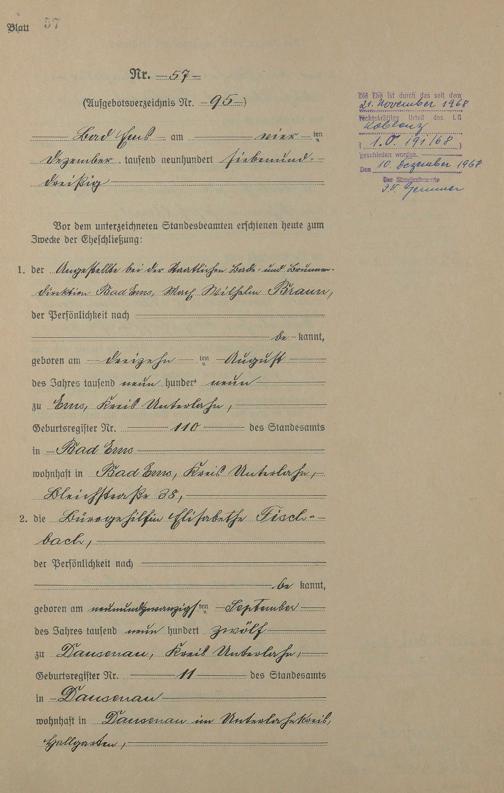 Blatt 57
Nr. 57
(Aufgebotsverzeichnis Nr. 95)
Die Ehe ist durch das seit dem
21. November 1968
rechtskräftige Urteil des LG
Koblenz
(1.O. 191/68)
geschieden worden.
Den 10. Dezember 1968
Der Standesbeamte
Bad Ems am vier ten
Dezember tausend neunhundert siebenund-
dreißig
Vor dem unterzeichneten Standesbeamten erschienen heute zum
Zwecke der Eheschließung:
1. der Angestellte bei der Staatlichen Bade- und Brunnen-
direktion Bad Ems, Wilhelm Braun,
der Persönlichkeit nach
be kannt,
geboren am dreizehn ten August
des Jahres tausend neun hundert neun
zu Ems, Kreis Unterlahn,
Geburtsregister Nr. 110 des Standesamts
in Bad Ems
wohnhaft in Bad Ems, Kreis Unterlahn,
Bleichstraße 38,
2. die Bürogehilfin Elisabethe Fisch-
bach,
der Persönlichkeit nach
be kannt,
geboren am neunundzwanzigs ten September
des Jahres tausend neun hundert zwölf
zu Dausenau, Kreis Unterlahn,
Geburtsregister Nr. 11 des Standesamts
in Dausenau
wohnhaft in Dausenau im Unterlahnkreis,
Hallgarten,